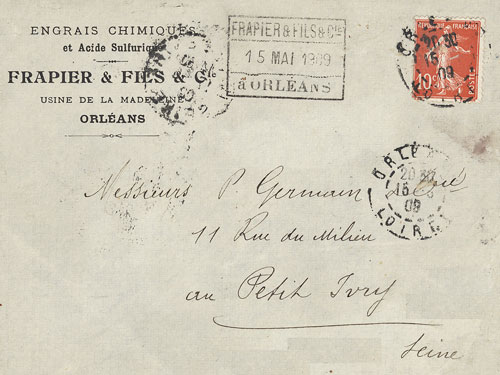 ENGRAIS CHIMIQUES
et Acide Sulfurique
FRAPIER & FILS & Cie
USINE DE LA MADELEINE
ORLÉANS
FRAPIER & FILS & Cie
15 MAI 1909
à ORLÉANS
10c
POSTES
ORLÉANS
20 30
15
09
LOIRET
Messieurs P Germain
11 Rue du Milieu
au Petit Ivry
Seine